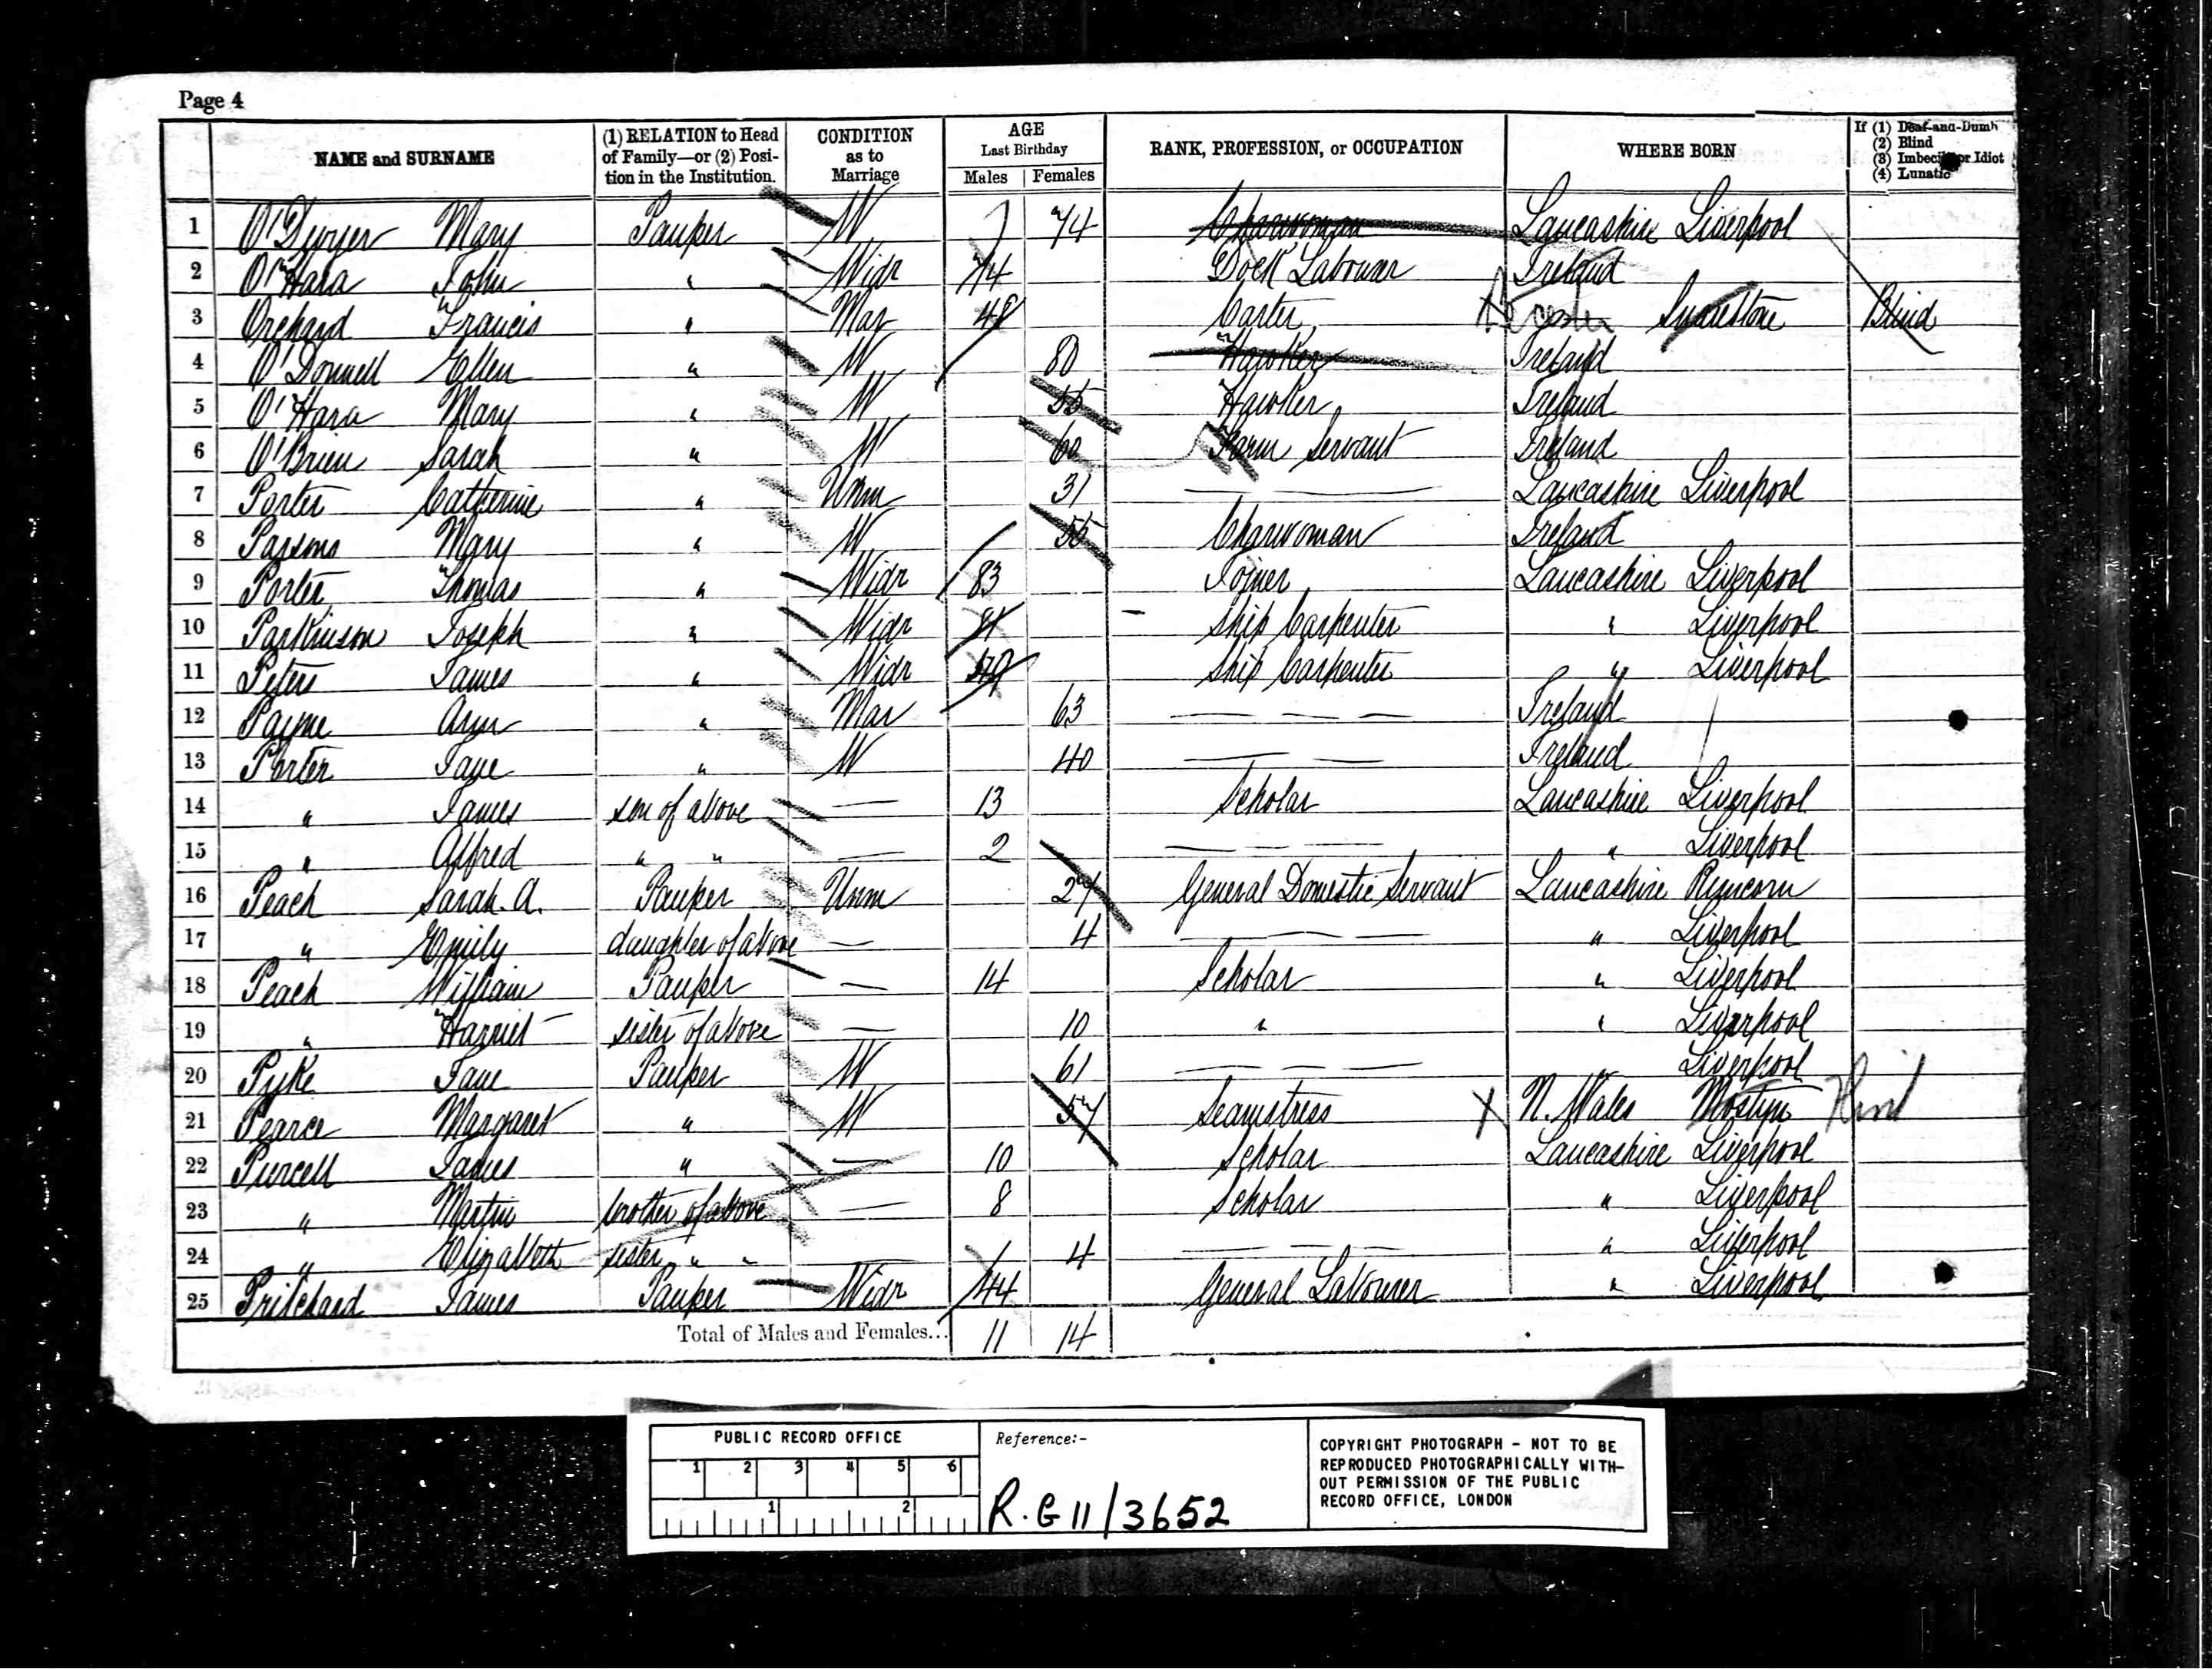 Page 4
NAME and SURNAME | (1) RELATION to Head of Family—or (2) Position in the Institution. | CONDITION as to Marriage | AGE Last Birthday Males | Females | RANK, PROFESSION, or OCCUPATION | WHERE BORN | If (1) Deaf-and-Dumb (2) Blind (3) Imbecile or Idiot (4) Lunatic
1 O'Dwyer Mary Pauper W 74 Charwoman Lancashire Liverpool
2 O'Hara John " Widr 74 Dock Labourer Ireland
3 Orchard Francis " Mar 48 Carter Blind
4 O'Donnell Ellen " W 80 Hawker Ireland
5 O'Hara Mary " W 55 Hawker Ireland
6 O'Brien Sarah " W 60 Farm Servant Ireland
7 Porter Catherine " Unm 31 — — Lancashire Liverpool
8 Parsons Mary " W 55 Charwoman Ireland
9 Porter Thomas " Widr 83 Joiner Lancashire Liverpool
10 Parkinson Joseph " Widr 81 Ship Carpenter " Liverpool
11 Peters James " Widr Ship Carpenter " Liverpool
12 Payne Ann " Mar 63 — — — Ireland
13 Porter Jane " W 40 — — — Ireland
14 " James son of above — 13 Scholar Lancashire Liverpool
15 " Alfred " " — 2 — — — " Liverpool
16 Peach Sarah A. Pauper Unm 27 General Domestic Servant Lancashire Runcorn
17 " Emily daughter of above — 4 — — — " Liverpool
18 Peach William Pauper — 14 Scholar " Liverpool
19 " Harriet sister of above — 10 " " Liverpool
20 Pyke Jane Pauper W 61 — — — Liverpool
21 Pearce Margaret " W 57 Seamstress X N. Wales Mostyn Flint
22 Purcell James " — 10 Scholar Lancashire Liverpool
23 " Martin brother of above — 8 Scholar " Liverpool
24 " Elizabeth sister " " — 4 — — — " Liverpool
25 Pritchard James Pauper Widr 44 General Labourer " Liverpool
Total of Males and Females... 11 14
PUBLIC RECORD OFFICE
1 2 3 4 5 6
1 2
Reference:-
R.G 11/3652
COPYRIGHT PHOTOGRAPH - NOT TO BE
REPRODUCED PHOTOGRAPHICALLY WITH-
OUT PERMISSION OF THE PUBLIC
RECORD OFFICE, LONDON